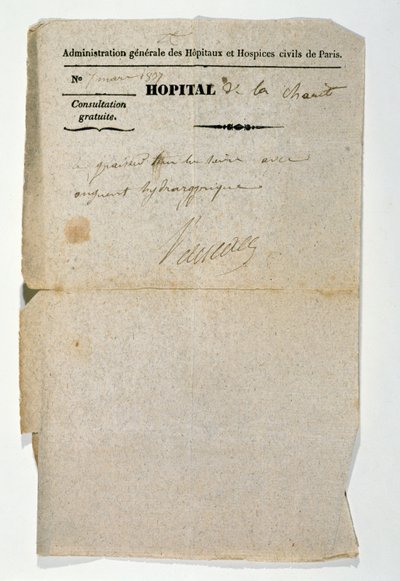 Administration générale des Hôpitaux et Hospices civils de Paris.
No 7 mars 1837
HOPITAL de la charité
Consultation
gratuite.
avec
onguent hydrargyrique